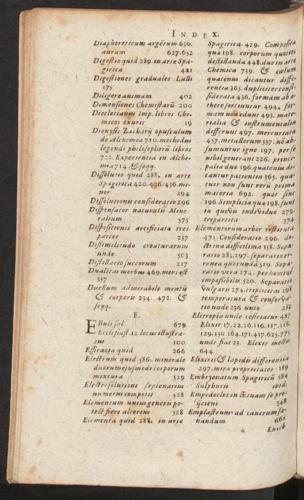 INDEX.
Diaphoreticum argētum 630.
aurum 627.632
Digestio quid 289. in arte Spa-
gerica 421
Digestiones graduales Lulli
175
Diligere animam 402
Dimensiones Chemistarū 200
Diocletianus imp. libros Che-
micos exurit 19
Dionysii Zacharij opusculum
de Alchemia 710. methodus
legendi philosophicos libros
722. Experientia in Alche-
mia 714. & seqq.
Dissolutio quid 288. in arte
Spagerica 420. 436. mi-
nor 294
Dissolutionis consideratio 296
Dispensator naturalis Mine-
ralium 575
Dispositionis artificiatæ tres
partes 237
Dissimilitudo creaturarum
unde 503
Distillatio succorum 217
Dualitas morbus 469. mercurii
357
Duellum admirabile mentis
& corporis 234. 472. &
seqq.
E.
Ebulis sal 679
Ecclesiast. 12 locus illustra-
tus 100
Efficatia quid 266
Electrum quid 386. minerale
durum ejusmodi corporum
mixtura 529
Electri solutione septenarius
numerus imprimis 328
Elementum unum generis po-
test fieri alterius 328
Elementa quid 288. in arte
Spagerica 429. Composita
qua 198. corporum quomodo
destillanda 448. duo in arte
Chemica 739. & cœlum
quatenus dicantur diffe-
rentia 365. dupliciter consi-
derata 436. formam ab æ-
there sortiuntur 494. for-
mam unde 493. mate-
rialia & instrumentalia
differunt 497. mercurata
457. metallorum 357. nō ab-
sumuntur igne 197. per se
nihil generant 226. princi-
palia duo 196. quatenus di-
cantur patientia 365. qua-
tuor non sunt rerum prima
materia 692. quot sint
196. Simplicia qua 198. sunt
in quovis individuo 279.
tripertita 378
Elementorum arbor vestenta
473. Consideratio 296. do-
ctrina difficilima 158. Sepa-
ratio 282. 297. separatio re-
rum quæ unda 519. Sepa-
ratio vera 274. per humens
impossibilis 520. Separatio
vulgaris 274. tripliciter 198
temperatura & conserva-
tio unde 236 unio 282
Elevatio unde causatur 457
Elixir 17. 22. 26. 116. 117. 118.
129. 130. 164. 171. 417. 625. 775.
unde fiat 23. Elixir media
644
Elixiris & lapidis differentia
297. mira proprietates 189
Embryonatum Spagericū 184
Sulphuris ibid.
Empedocles in Ætnam se pro-
ijciens 348
Emplastrum ad cancrum sa-
nandum 662